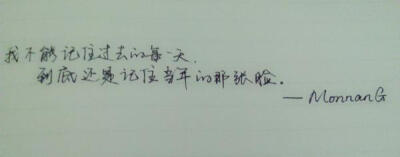 我不能记住过去的每一天,
到底还是记住当年的那张脸。
—MonnanG